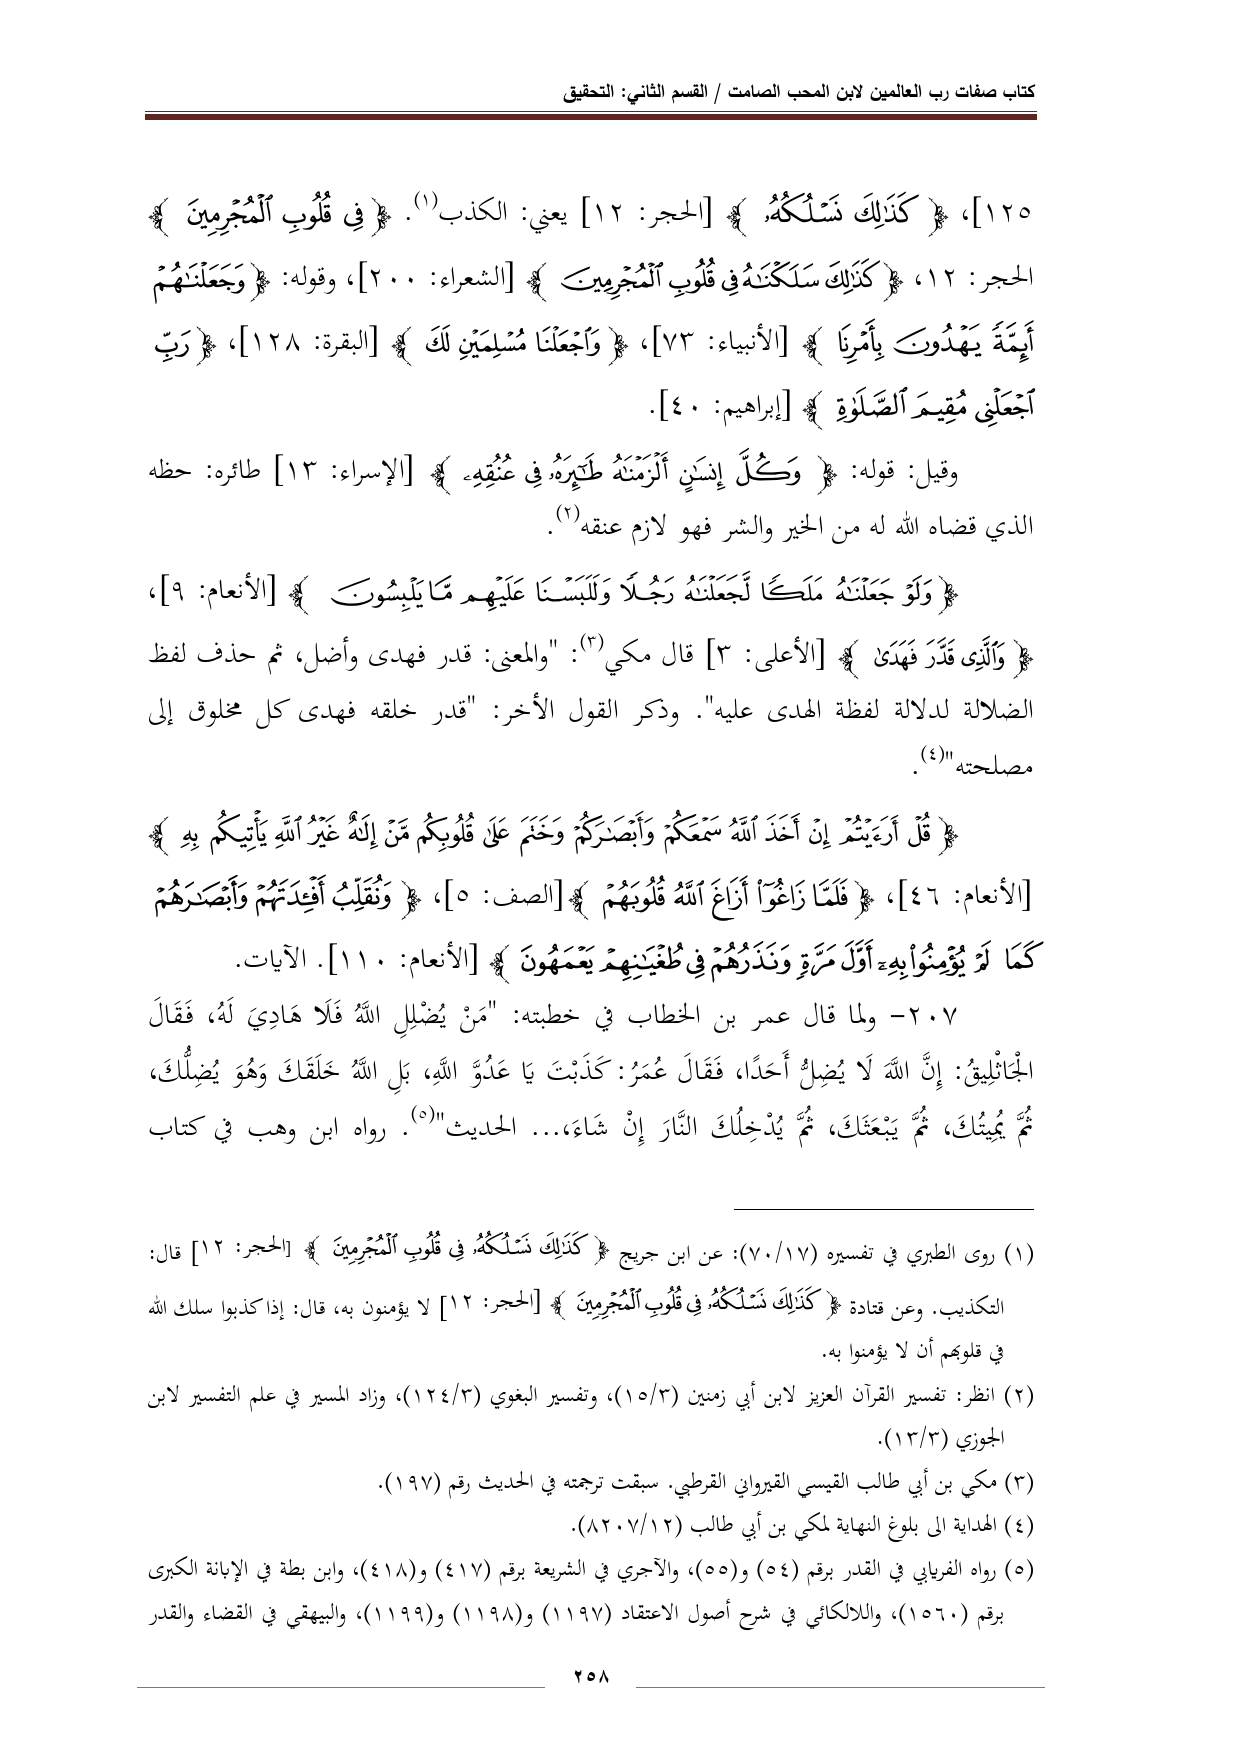 كتاب صفات رب العالمين لابن المحب الصامت / القسم الثاني: التحقيق
١٢٥]، ﴿ كَذَٰلِكَ نَسْلُكُهُۥ ﴾ [الحجر: ١٢] يعني: الكذب(١). ﴿ فِي قُلُوبِ ٱلْمُجْرِمِينَ ﴾
الحجر: ١٢، ﴿ كَذَٰلِكَ سَلَكْنَٰهُ فِي قُلُوبِ ٱلْمُجْرِمِينَ ﴾ [الشعراء: ٢٠٠]، وقوله: ﴿ وَجَعَلْنَٰهُمْ
أَئِمَّةً يَهْدُونَ بِأَمْرِنَا ﴾ [الأنبياء: ٧٣]، ﴿ وَٱجْعَلْنَا مُسْلِمَيْنِ لَكَ ﴾ [البقرة: ١٢٨]، ﴿ رَبِّ
ٱجْعَلْنِي مُقِيمَ ٱلصَّلَوٰةِ ﴾ [إبراهيم: ٤٠].
وقيل: قوله: ﴿ وَكُلَّ إِنسَٰنٍ أَلْزَمْنَٰهُ طَٰٓئِرَهُۥ فِي عُنُقِهِۦ ﴾ [الإسراء: ١٣] طائره: حظه
الذي قضاه الله له من الخير والشر فهو لازم عنقه(٢).
﴿ وَلَوْ جَعَلْنَٰهُ مَلَكًا لَّجَعَلْنَٰهُ رَجُلًا وَلَلَبَسْنَا عَلَيْهِم مَّا يَلْبِسُونَ ﴾ [الأنعام: ٩]،
﴿ وَٱلَّذِي قَدَّرَ فَهَدَىٰ ﴾ [الأعلى: ٣] قال مكي(٣): "والمعنى: قدر فهدى وأضل، ثم حذف لفظ
الضلالة لدلالة لفظة الهدى عليه". وذكر القول الأخر: "قدر خلقه فهدى كل مخلوق إلى
مصلحته"(٤).
﴿ قُلْ أَرَءَيْتُمْ إِنْ أَخَذَ ٱللَّهُ سَمْعَكُمْ وَأَبْصَٰرَكُمْ وَخَتَمَ عَلَىٰ قُلُوبِكُم مَّنْ إِلَٰهٌ غَيْرُ ٱللَّهِ يَأْتِيكُم بِهِ ﴾
[الأنعام: ٤٦]، ﴿ فَلَمَّا زَاغُوٓا۟ أَزَاغَ ٱللَّهُ قُلُوبَهُمْ ﴾[الصف: ٥]، ﴿ وَنُقَلِّبُ أَفْـِٔدَتَهُمْ وَأَبْصَٰرَهُمْ
كَمَا لَمْ يُؤْمِنُوا۟ بِهِۦٓ أَوَّلَ مَرَّةٍ وَنَذَرُهُمْ فِي طُغْيَٰنِهِمْ يَعْمَهُونَ ﴾ [الأنعام: ١١٠]. الآيات.
٢٠٧- ولما قال عمر بن الخطاب في خطبته: "مَنْ يُضْلِلِ اللَّهُ فَلَا هَادِيَ لَهُ، فَقَالَ
الْجَاثْلِيقُ: إِنَّ اللَّهَ لَا يُضِلُّ أَحَدًا، فَقَالَ عُمَرُ: كَذَبْتَ يَا عَدُوَّ اللَّهِ، بَلِ اللَّهُ خَلَقَكَ وَهُوَ يُضِلُّكَ،
ثُمَّ يُمِيتُكَ، ثُمَّ يَبْعَثَكَ، ثُمَّ يُدْخِلُكَ النَّارَ إِنْ شَاءَ،... الحديث"(٥). رواه ابن وهب في كتاب
(١) روى الطبري في تفسيره (٧٠/١٧): عن ابن جريج ﴿ كَذَٰلِكَ نَسْلُكُهُۥ فِي قُلُوبِ ٱلْمُجْرِمِينَ ﴾ [الحجر: ١٢] قال:
التكذيب. وعن قتادة ﴿ كَذَٰلِكَ نَسْلُكُهُۥ فِي قُلُوبِ ٱلْمُجْرِمِينَ ﴾ [الحجر: ١٢] لا يؤمنون به، قال: إذا كذبوا سلك الله
في قلوبهم أن لا يؤمنوا به.
(٢) انظر: تفسير القرآن العزيز لابن أبي زمنين (١٥/٣)، وتفسير البغوي (١٢٤/٣)، وزاد المسير في علم التفسير لابن
الجوزي (١٣/٣).
(٣) مكي بن أبي طالب القيسي القيرواني القرطبي. سبقت ترجمته في الحديث رقم (١٩٧).
(٤) الهداية الى بلوغ النهاية لمكي بن أبي طالب (٨٢٠٧/١٢).
(٥) رواه الفريابي في القدر برقم (٥٤) و(٥٥)، والآجري في الشريعة برقم (٤١٧) و(٤١٨)، وابن بطة في الإبانة الكبرى
برقم (١٥٦٠)، واللالكائي في شرح أصول الاعتقاد (١١٩٧) و(١١٩٨) و(١١٩٩)، والبيهقي في القضاء والقدر
٢٥٨